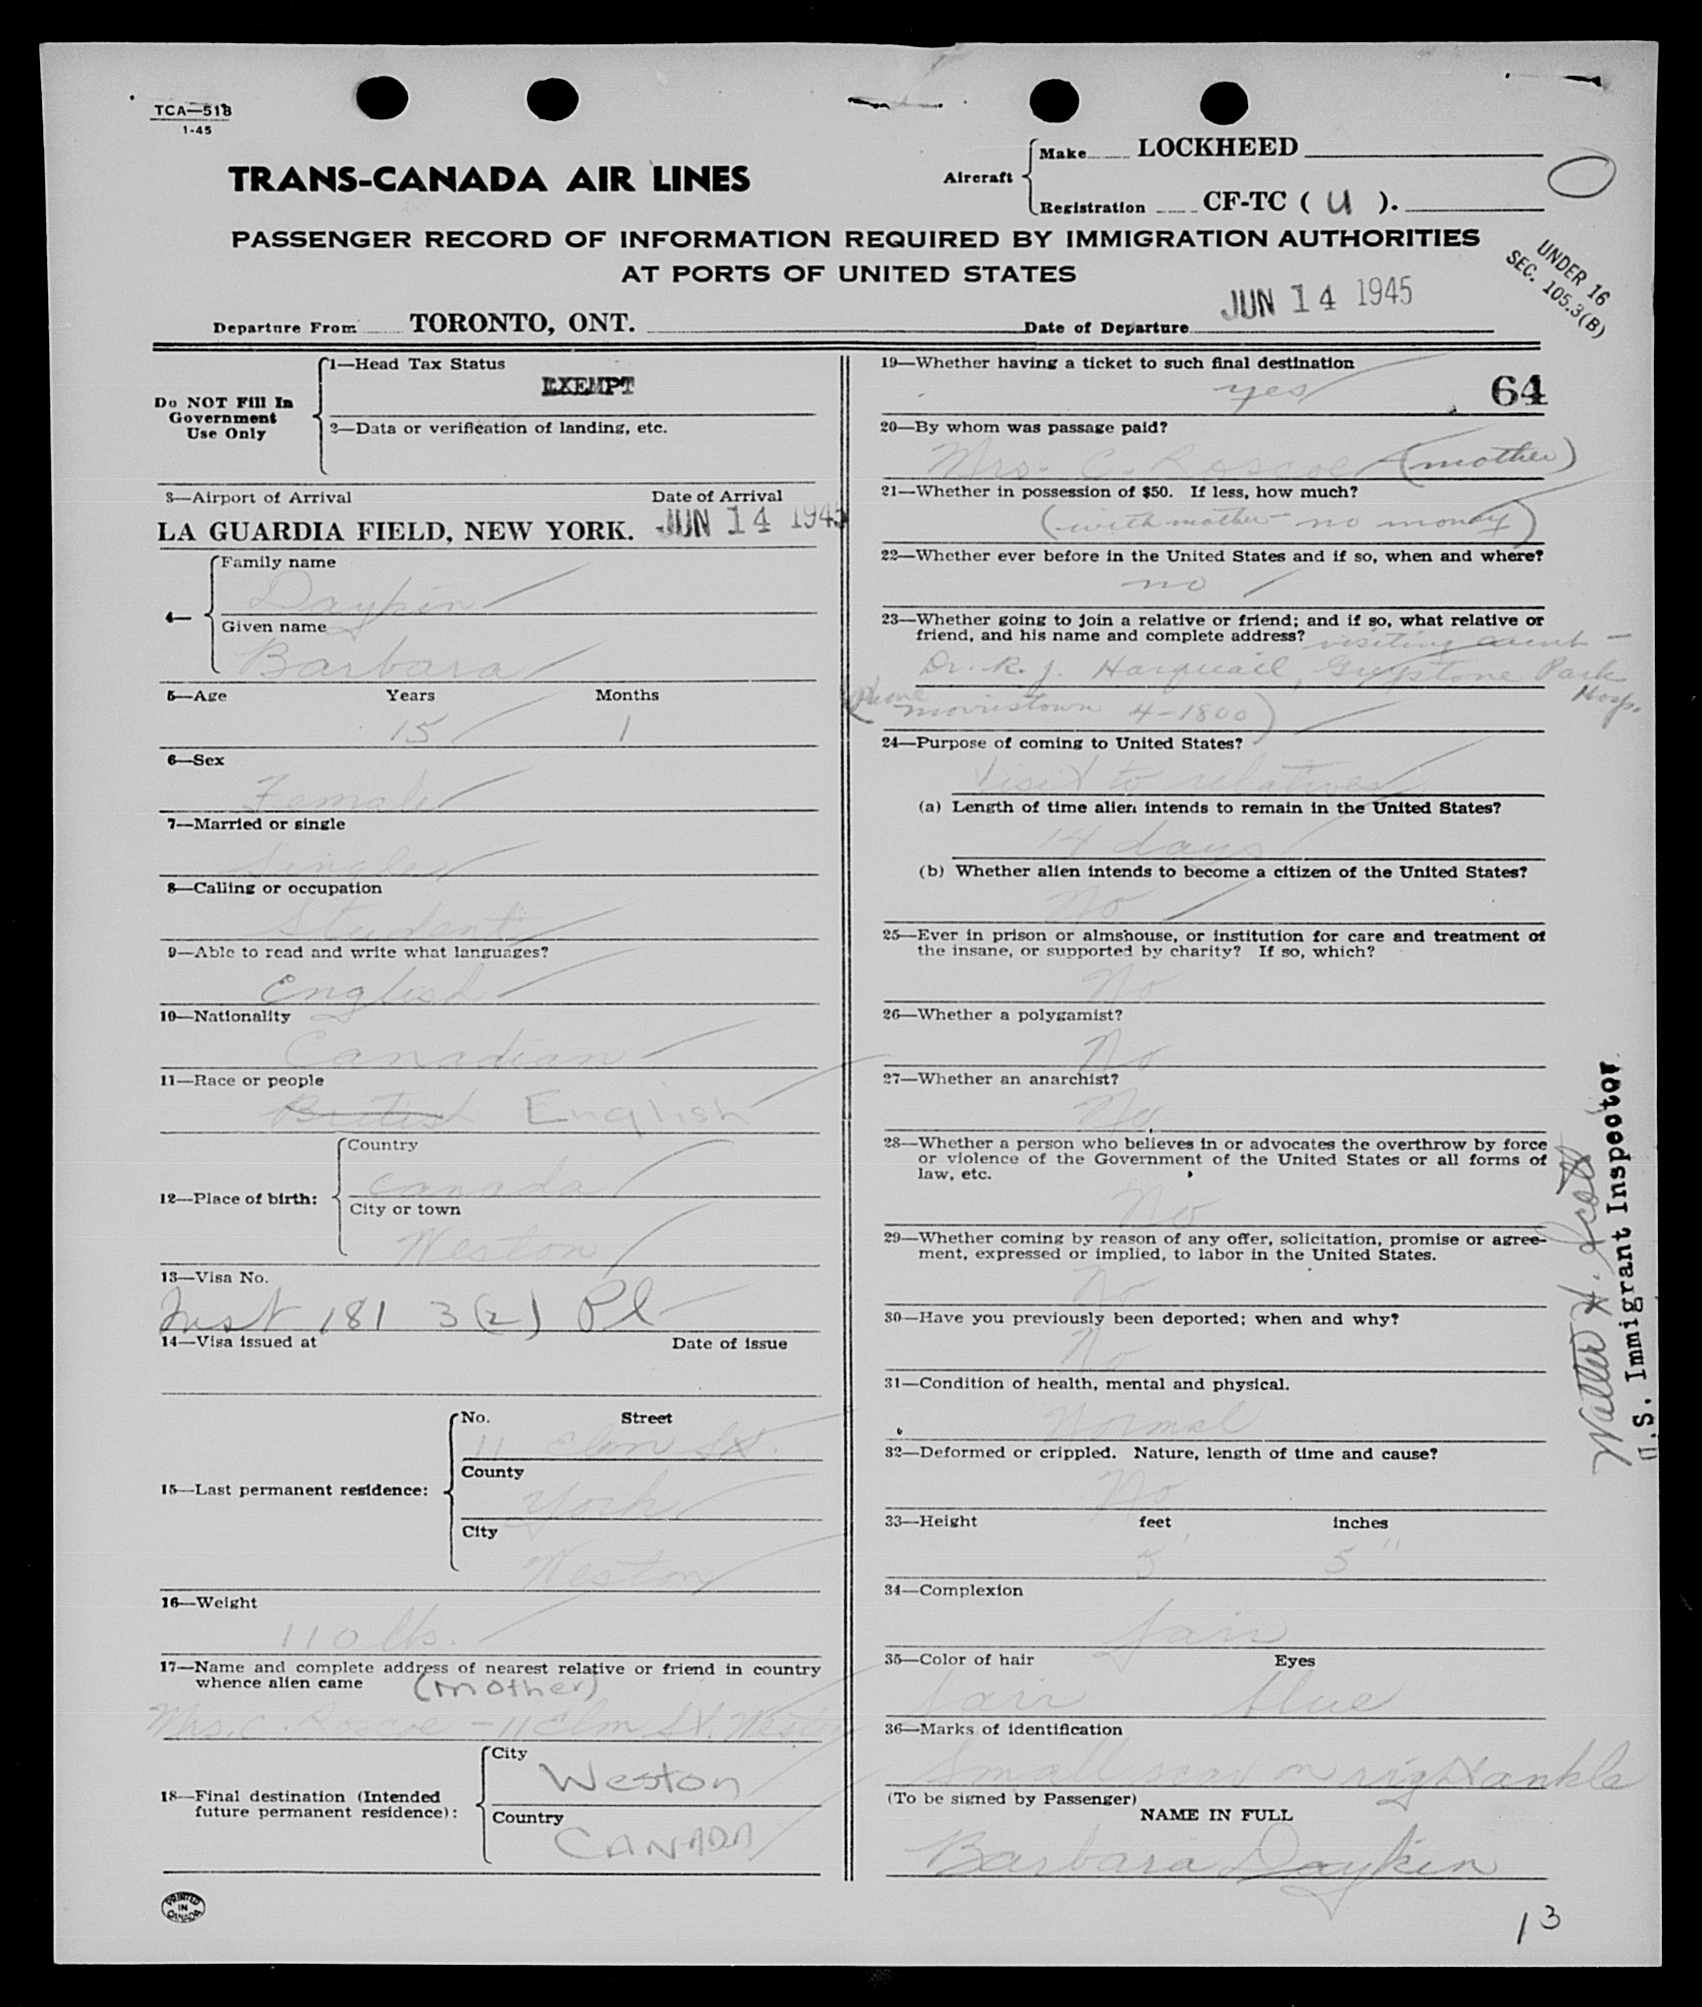 TCA—518
1-45
TRANS-CANADA AIR LINES
Aircraft
Make LOCKHEED
Registration CF-TC ( U ).
PASSENGER RECORD OF INFORMATION REQUIRED BY IMMIGRATION AUTHORITIES
AT PORTS OF UNITED STATES
UNDER 16
SEC. 105.3(B)
Departure From TORONTO, ONT. Date of Departure JUN 14 1945
Do NOT Fill In
Government
Use Only
1—Head Tax Status
EXEMPT
2—Data or verification of landing, etc.
3—Airport of Arrival Date of Arrival
LA GUARDIA FIELD, NEW YORK. JUN 14 1945
4—
Family name
Daykin
Given name
Barbara
5—Age Years Months
15 1
6—Sex
Female
7—Married or single
Single
8—Calling or occupation
Student
9—Able to read and write what languages?
English
10—Nationality
Canadian
11—Race or people
British English
12—Place of birth:
Country
Canada
City or town
Weston
13—Visa No.
Inst 181 3(2) Pl
14—Visa issued at Date of issue
15—Last permanent residence:
No. Street
11 Elm St.
County
York
City
Weston
16—Weight
110 lbs.
17—Name and complete address of nearest relative or friend in country
whence alien came (mother)
Mrs. C. Roscoe - 11 Elm St. Weston
18—Final destination (Intended
future permanent residence):
City
Weston
Country
CANADA
PRINTED
IN
CANADA
19—Whether having a ticket to such final destination
yes
64
20—By whom was passage paid?
Mrs. C. Roscoe (mother)
21—Whether in possession of $50. If less, how much?
(with mother - no money)
22—Whether ever before in the United States and if so, when and where?
no
23—Whether going to join a relative or friend; and if so, what relative or
friend, and his name and complete address? visiting aunt -
Dr. R. J. Harquail, Greystone Park
Hosp.
(phone Morristown 4-1800)
24—Purpose of coming to United States?
Visit to relatives
(a) Length of time alien intends to remain in the United States?
14 days
(b) Whether alien intends to become a citizen of the United States?
No
25—Ever in prison or almshouse, or institution for care and treatment of
the insane, or supported by charity? If so, which?
No
26—Whether a polygamist?
No
27—Whether an anarchist?
No
28—Whether a person who believes in or advocates the overthrow by force
or violence of the Government of the United States or all forms of
law, etc.
No
29—Whether coming by reason of any offer, solicitation, promise or agree-
ment, expressed or implied, to labor in the United States.
No
30—Have you previously been deported; when and why?
No
31—Condition of health, mental and physical.
Normal
32—Deformed or crippled. Nature, length of time and cause?
No
33—Height feet inches
5' 5"
34—Complexion
fair
35—Color of hair Eyes
fair blue
36—Marks of identification
Small scar on right ankle
(To be signed by Passenger)
NAME IN FULL
Barbara Daykin
Walter H. Scott
U.S. Immigrant Inspector
13